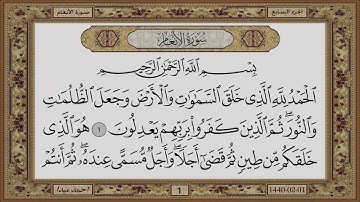 سورة الأنعام
الجزء السابع
سُورَةُ الأَنْعَامِ
بِسْمِ اللَّهِ الرَّحْمَٰنِ الرَّحِيمِ
الْحَمْدُ لِلَّهِ الَّذِي خَلَقَ السَّمَاوَاتِ وَالْأَرْضَ وَجَعَلَ الظُّلُمَاتِ
وَالنُّورَ ۖ ثُمَّ الَّذِينَ كَفَرُوا بِرَبِّهِمْ يَعْدِلُونَ ١ هُوَ الَّذِي
خَلَقَكُم مِّن طِينٍ ثُمَّ قَضَىٰ أَجَلًا ۖ وَأَجَلٌ مُّسَمًّى عِندَهُ ۖ ثُمَّ أَنتُمْ
1
1440-02-01